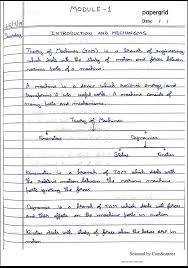 MODULE-1
papergrid
Date: / /
INTRODUCTION AND MECHANISMS
Theory of Machines (TOM) is a branch of engineering
which deals with the study of motion and forces between
various parts of a machine.
A machine is a device which receives energy and
transforms it into useful work. A machine consists of
many parts and mechanisms.
Theory of Machines
Kinematics Dynamics
Statics Kinetics
Kinematics is a branch of TOM which deals with
the relative motion between the various machine
parts ignoring the forces
Dynamics is a branch of TOM which deals with forces
and their effects on the machine parts in motion
Kinetics deals with study of forces when the bodies are in
motion
Scanned by CamScanner